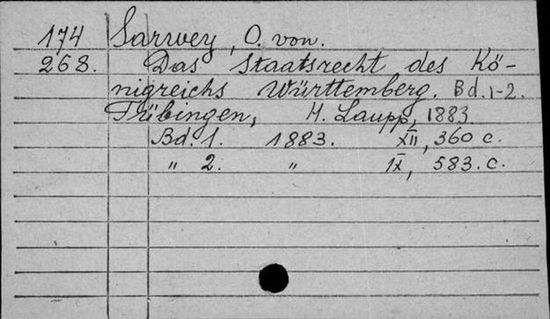 174 Sarwey, O. von.
268. Das Staatsrecht des Kö-
nigreichs Württemberg. Bd. 1-2.
Tübingen, H. Laupp, 1883
Bd. 1. 1883. XII, 360 c.
" 2. " IX, 583. c.